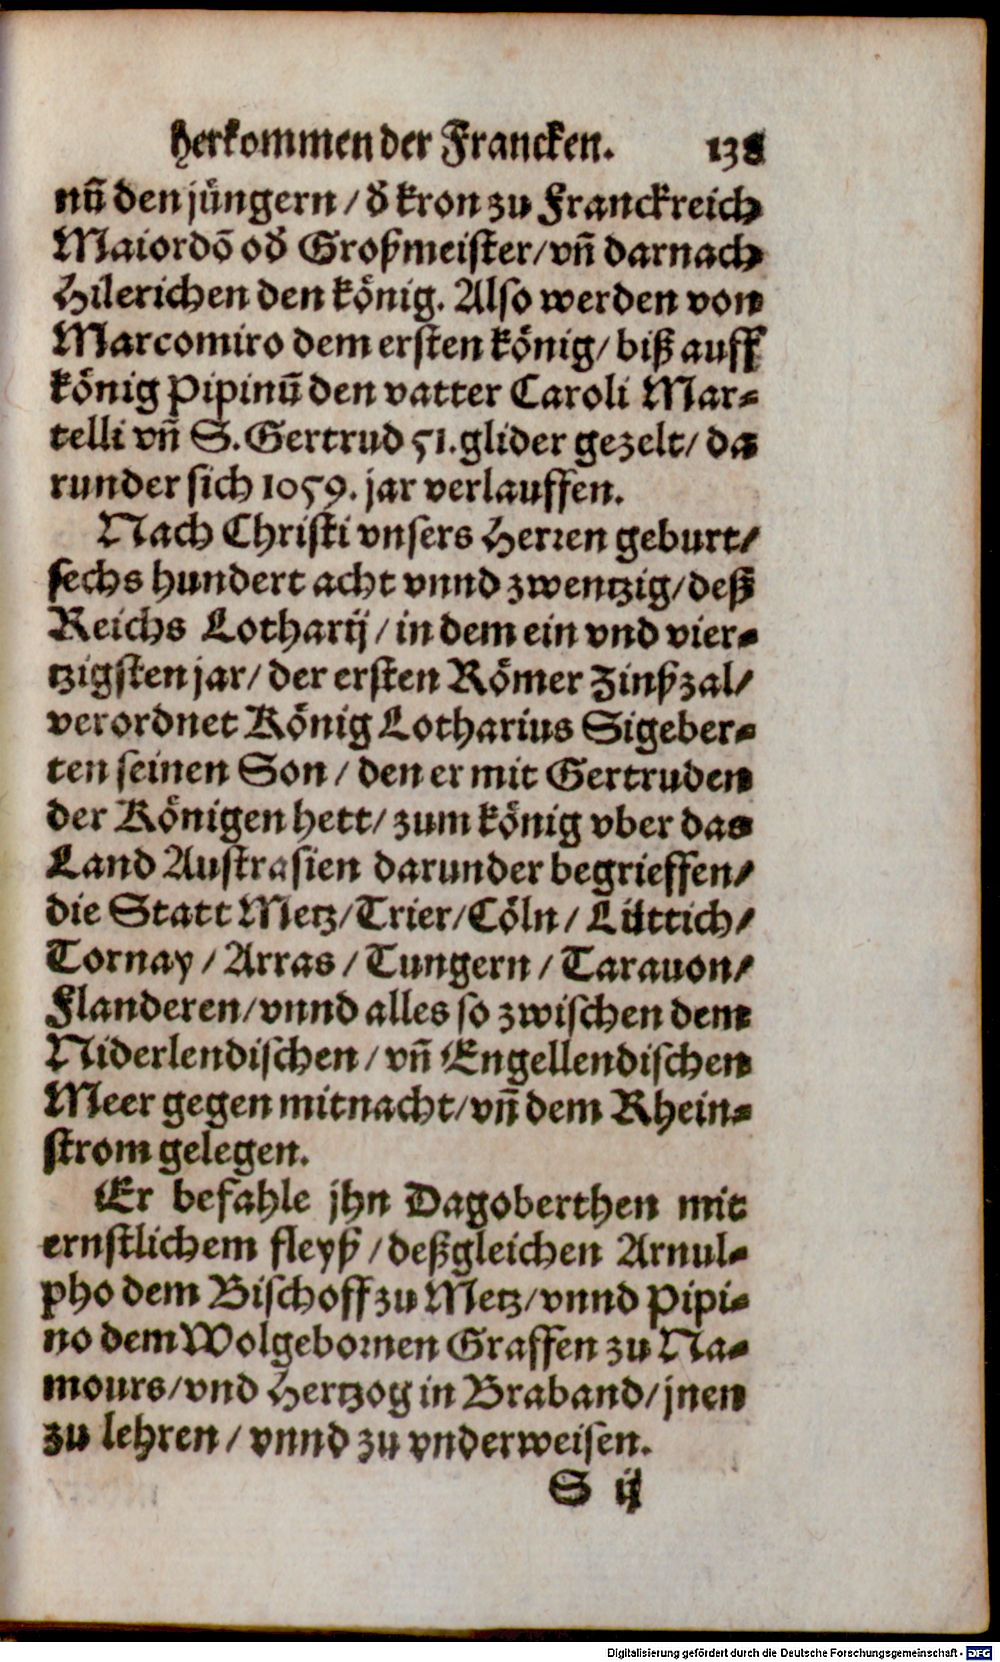 herkommen der Francken. 138
nū den jüngern / d̄ kron zu Franckreich
Maiordō od̄ Großmeister/vn̄ darnach
Hilerichen den könig. Also werden von
Marcomiro dem ersten könig/ biß auff
könig Pipinū den vatter Caroli Mar-
telli vn̄ S. Gertrud 51. glider gezelt/ da
runder sich 1059. jar verlauffen.
Nach Christi vnsers Herren geburt/
sechs hundert acht vnnd zwentzig/deß
Reichs Lotharij / in dem ein vnd vier-
tzigsten jar/ der ersten Römer Zinßzal/
verordnet König Lotharius Sigeber-
ten seinen Son / den er mit Gertruden
der Königen hett/ zum könig vber das
Land Austrasien darunder begrieffen/
die Statt Metz/Trier/Cöln / Lüttich/
Tornay / Arras / Tungern / Tarauon/
Flanderen/vnnd alles so zwischen dem
Niderlendischen / vn̄ Engellendischen
Meer gegen mitnacht/vn̄ dem Rhein-
strom gelegen.
Er befahle jhn Dagoberthen mit
ernstlichem fleyß / deßgleichen Arnul-
pho dem Bischoff zu Metz/vnnd Pipi-
no dem Wolgebornen Graffen zu Na-
mours/vnd Hertzog in Braband/jnen
zu lehren / vnnd zu vnderweisen.
S ij
Digitalisierung gefördert durch die Deutsche Forschungsgemeinschaft - DFG